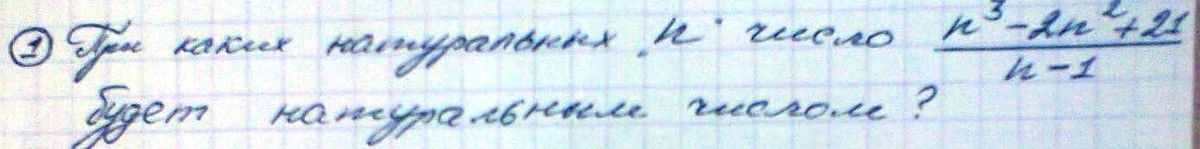 ① При каких натуральных "n" число (n³-2n²+21)/(n-1)
будет натуральным числом?